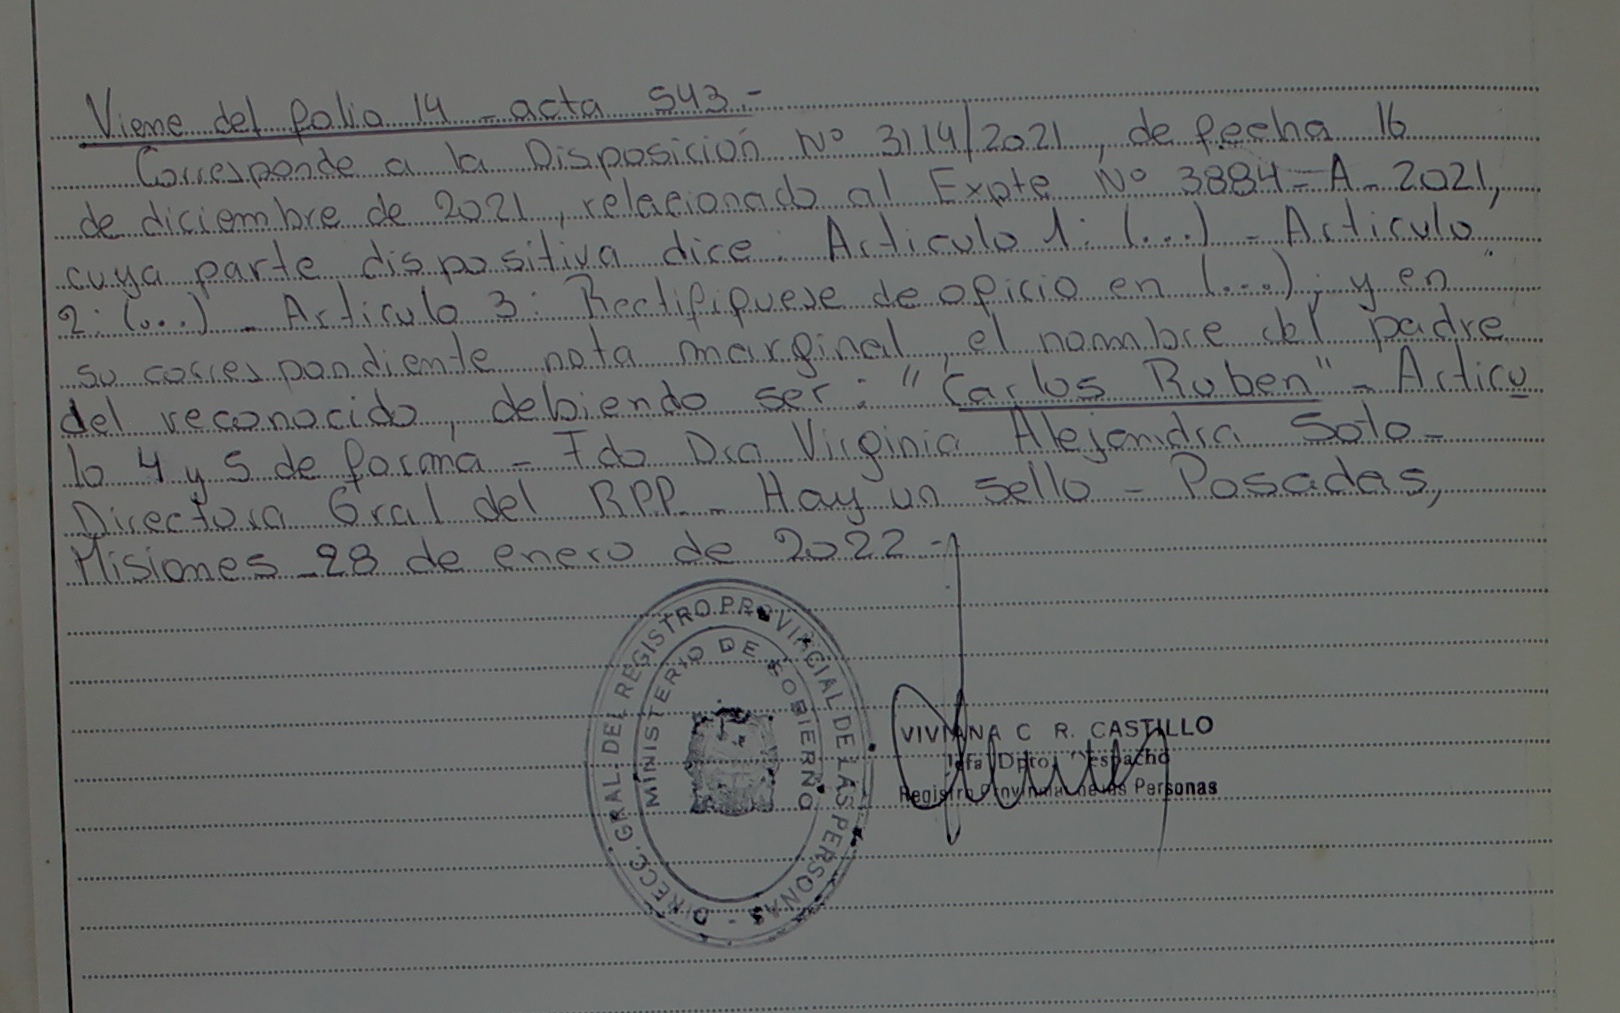 Viene del folio 14 - acta 543.-
Corresponde a la Disposición Nº 3114/2021, de fecha 16
de diciembre de 2021, relacionado al Expte Nº 3884-A-2021,
cuya parte dispositiva dice: Articulo 1: (...) - Articulo
2: (...) - Articulo 3: Rectifiquese de oficio en (...); y en
su correspondiente nota marginal, el nombre del padre
del reconocido, debiendo ser: "Carlos Ruben" - Articu
lo 4 y 5 de forma - Fdo Dra Virginia Alejandra Soto -
Directora Gral del RPP - Hay un sello - Posadas,
Misiones 28 de enero de 2022 -
DIRECC. GRAL. DEL REGISTRO PROVINCIAL DE LAS PERSONAS -
MINISTERIO DE GOBIERNO
VIVIANA C R. CASTILLO
Jefa Dpto. Despacho
Registro Provincial de las Personas